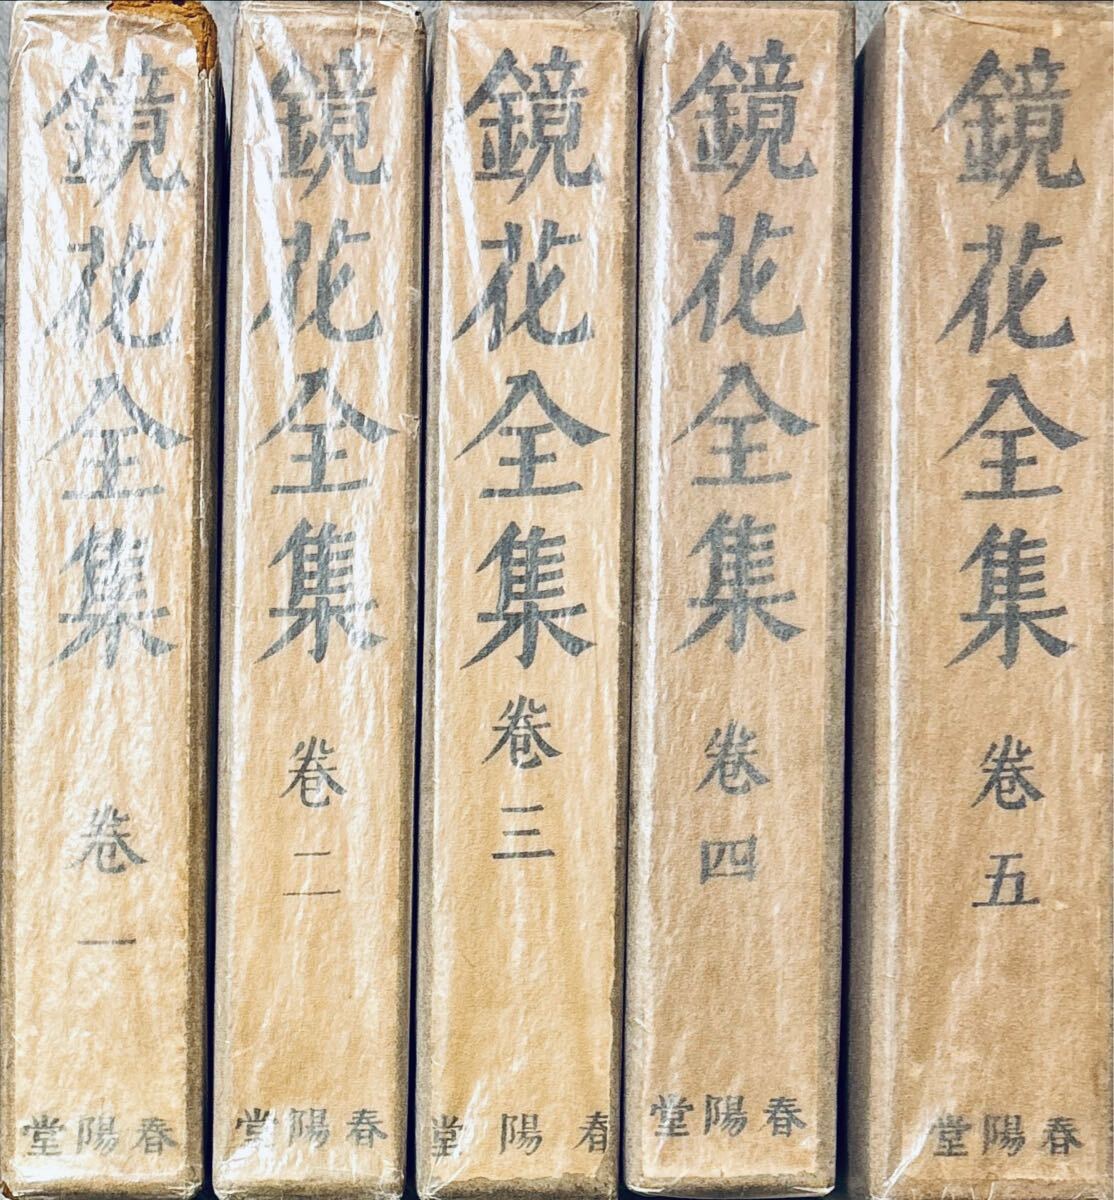 鏡花全集 卷一
春陽堂
鏡花全集 卷二
春陽堂
鏡花全集 卷三
春陽堂
鏡花全集 卷四
春陽堂
鏡花全集 卷五
春陽堂